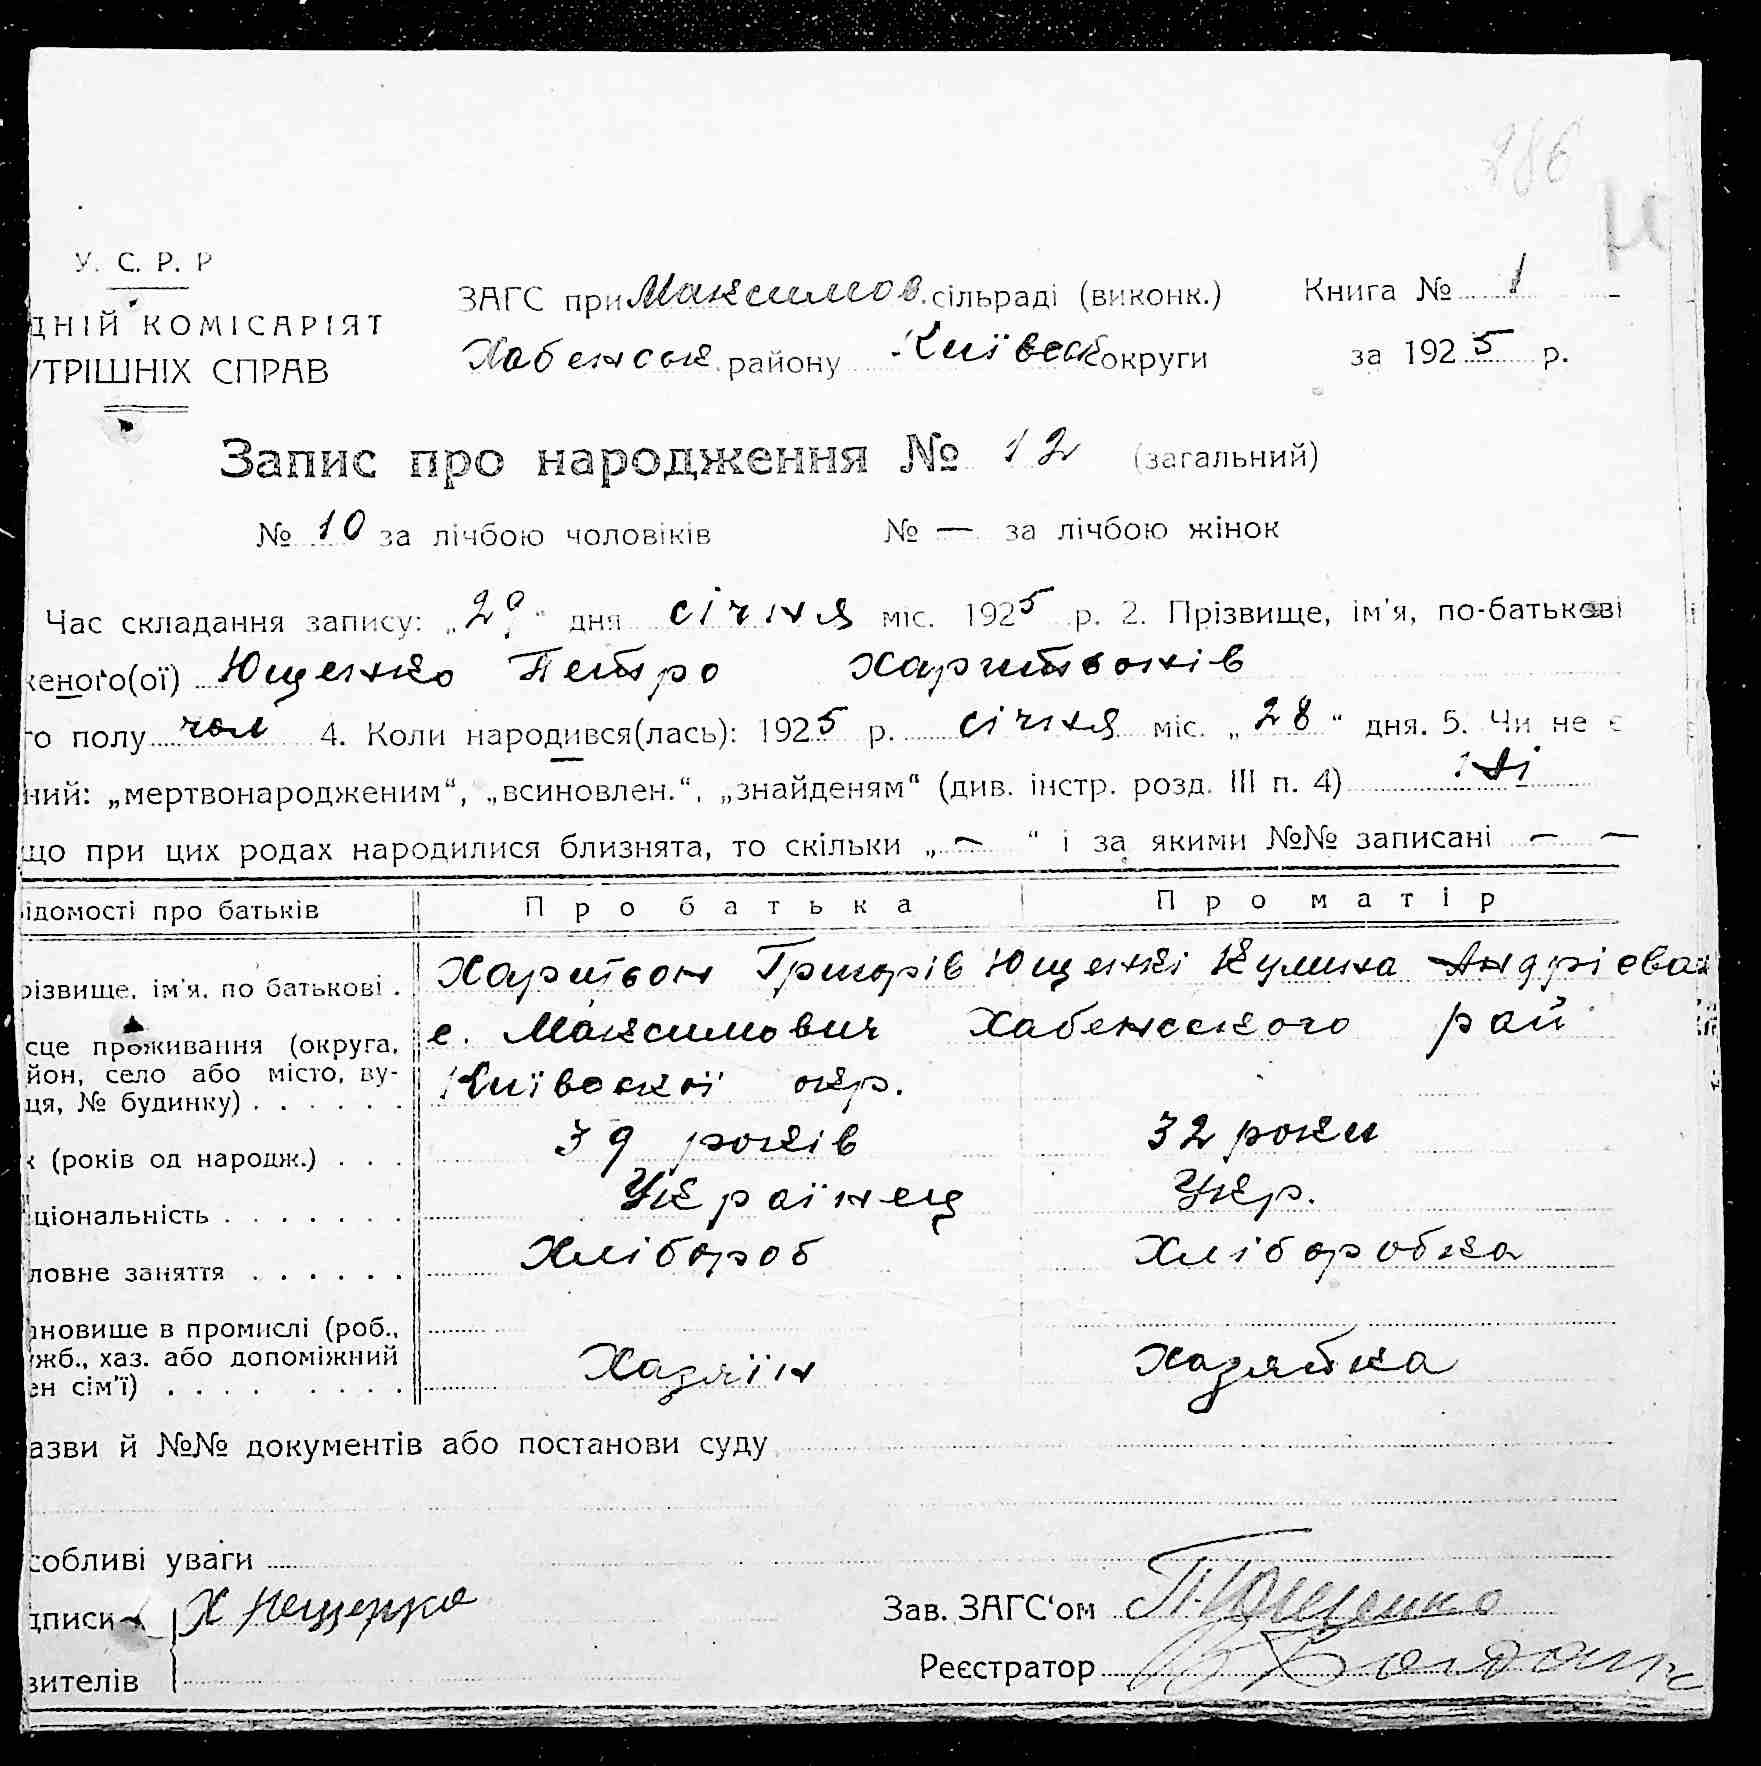 286
У. С. Р. Р
ДНІЙ КОМІСАРІЯТ
УТРІШНІХ СПРАВ
ЗАГС при Максимов. сільраді (виконк.)
Книга № 1
Хабенськ. району Київськ округи
за 1925 р.
Запис про народження № 12 (загальний)
№ 10 за лічбою чоловіків № — за лічбою жінок
Час складання запису: „29“ дня січня міс. 1925 р. 2. Прізвище, ім'я, по-батькові
женого(ої) Ющенко Петро Харитонів
го полу чол 4. Коли народився(лась): 1925 р. січня міс. „28“ дня. 5. Чи не є
ний: „мертвонародженим“, „всиновлен.“, „знайденям“ (див. інстр. розд. III п. 4) ні
що при цих родах народилися близнята, то скільки „—“ і за якими №№ записані — —
ідомості про батьків
Про батька
Про матір
різвище, ім'я, по батькові .
Харитон Григорів Ющенкі Кулина Андрієва
сце проживання (округа,
йон, село або місто, ву-
ця, № будинку) . . . . . .
с. Максимович Хабенського рай
Київської окр.
к (років од народж.) . . .
39 років
32 роки
ціональність . . . . . . .
Українец
Укр.
ловне заняття . . . . . .
Хлібороб
Хліборобка
ановище в промислі (роб.,
ужб., хаз. або допоміжний
ен сім'ї) . . . . . . . . .
Хазяїн
Хазяйка
азви й №№ документів або постанови суду
собливі уваги
дписи Х Ющенко
вителів
Зав. ЗАГС'ом П. Ющенко
Реєстратор